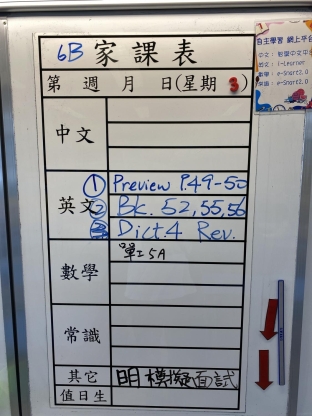 6B 家課表
第 週 月 日(星期 3)
中文
英文
① Preview P.49-50
② Bk. 52,55,56
③ Dict 4 Rev.
數學
單工5A
常識
其它
明模擬面試
值日生
自主學習 網上平台
i-Learner
e-Smart2.0
e-Smart2.0